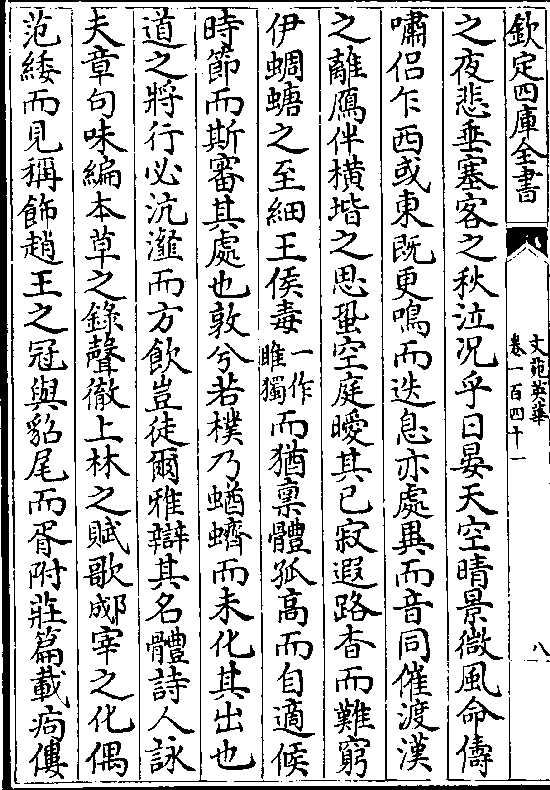 欽定四庫全書
文苑英華
卷一百四十一
八
之夜悲垂塞客之秋泣况乎日晏天空晴景微風命儔
嘯侣乍西或東既更鳴而迭息亦處異而音同催渡漢
之離鴈伴横堦之思蛩空庭曖其已寂遐路杳而難窮
伊蜩螗之至細王侯毒一作睢獨而猶禀體孤高而自適候
時節而斯審其處也敦兮若樸乃蝤蠐而未化其出也
道之將行必沆瀣而方飲豈徒爾雅辯其名體詩人詠
夫章句味編本草之錄聲徹上林之賦歌郕宰之化偶
范緌而見稱飾趙王之冠與貂尾而胥附莊篇載痀僂